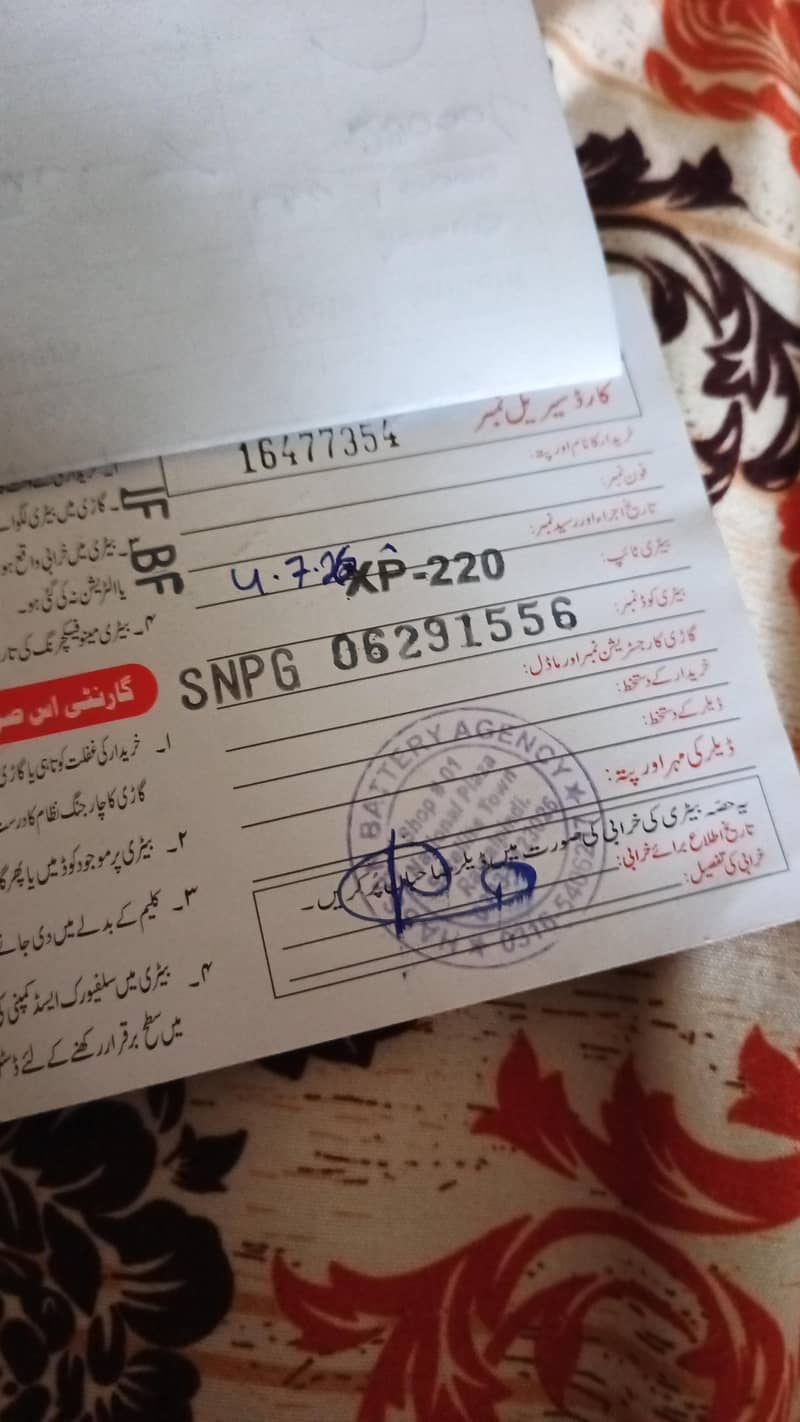 کارڈ سیریل نمبر
16477354
خریدار کا نام اور پتہ:
فون نمبر:
تاریخ اجراء اور رسید نمبر:
4.7.26
بیٹری ٹائپ:
XP-220
بیٹری کوڈ نمبر:
SNPG 06291556
گاڑی کا رجسٹریشن نمبر اور ماڈل:
خریدار کے دستخط:
ڈیلر کے دستخط:
ڈیلر کی مہر اور پتہ:
BATTERY AGENCY
Shop # 01
National Plaza
Town
یہ حصہ بیٹری کی خرابی کی صورت میں ڈیلر صاحبان پُر کریں۔
تاریخ اطلاع برائے خرابی:
خرابی کی تفصیل:
JF
BF
۔ گاڑی میں بیٹری لگوا
۔ بیٹری میں خرابی واقع ہو
یا الٹریشن نہ کی گئی ہو۔
۴۔ بیٹری مینوفیکچرنگ کی تار
گارنٹی اس صو
۱۔ خریدار کی غفلت کوتاہی یا گاڑی
گاڑی کا چارجنگ نظام کا درست
۲۔ بیٹری پر موجود کوڈ میں یا پھر گا
۳۔ کلیم کے بدلے میں دی جانے
۴۔ بیٹری میں سلفیورک ایسڈ کمپنی کی
میں سطح برقرار رکھنے کے لئے ڈسٹ